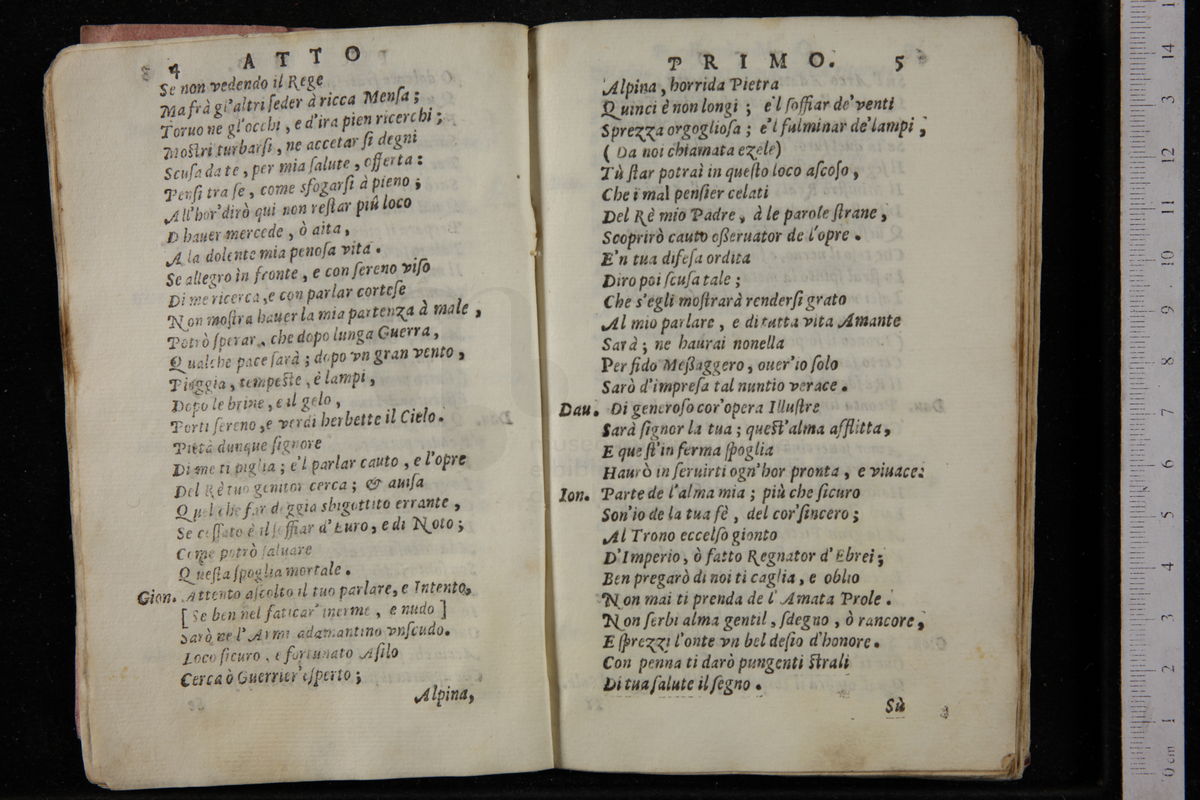 4 ATTO
Se non vedendo il Rege
Ma frà gl'altri seder à ricca Mensa;
Toruo ne gl'occhi, e d'ira pien ricerchi;
Mostri turbarsi, ne accetar si degni
Scusa da te, per mia salute, offerta:
Pensi tra se, come sfogarsi à pieno;
All'hor' dirò qui non restar più loco
D hauer mercede, ò aita,
A la dolente mia penosa vita.
Se allegro in fronte, e con sereno viso
Di me ricerca, e con parlar cortese
Non mostra hauer la mia partenza à male,
Potrò sperar, che dopo lunga Guerra,
Qualche pace sarà; dopo vn gran vento,
Pioggia, tempeste, è lampi,
Dopo le brine, e il gelo,
Porti sereno, e verdi herbette il Cielo.
Pietà dunque signore
Di me ti piglia; e'l parlar cauto, e l'opre
Del Rè tuo genitor cerca; & auisa
Quel che far deggia sbigottito errante,
Se cessato è il soffiar d'Euro, e di Noto;
Come potrò saluare
Questa spoglia mortale.
Gion. Attento ascolto il tuo parlare, e Intento,
[Se ben nel faticar' inerme, e nudo]
Sarò ne l'Armi adamantino vnscudo.
Loco sicuro, e fortunato Asilo
Cerca ò Guerrier' esperto;
Alpina,
PRIMO. 5
Alpina, horrida Pietra
Quinci è non longi; e'l soffiar de' venti
Sprezza orgogliosa; e'l fulminar de' lampi,
(Da noi chiamata ezele)
Tù star potrai in questo loco ascoso,
Che i mal pensier celati
Del Rè mio Padre, à le parole strane,
Scoprirò cauto osseruator de l'opre.
E'n tua difesa ordita
Diro poi scusa tale;
Che s'egli mostrarà rendersi grato
Al mio parlare, e di tutta vita Amante
Sarà; ne haurai nonella
Per fido Messaggero, ouer'io solo
Sarò d'impresa tal nuntio verace.
Dau. Di generoso cor' opera Illustre
Sarà signor la tua; quest'alma afflitta,
E que st'in ferma spoglia
Haurò in seruirti ogn'hor pronta, e viuace:
Ion. Parte de l'alma mia; più che sicuro
Son'io de la tua fè, del cor' sincero;
Al Trono eccelso gionto
D'Imperio, ò fatto Regnator d'Ebrei;
Ben pregarò di noi ti caglia, e oblio
Non mai ti prenda de l'Amata Prole.
Non serbi alma gentil, sdegno, ò rancore,
E sprezzi l'onte vn bel desio d'honore.
Con penna ti darò pungenti strali
Di tua salute il segno.
Sù
0 cm 1 2 3 4 5 6 7 8 9 10 11 12 3 14